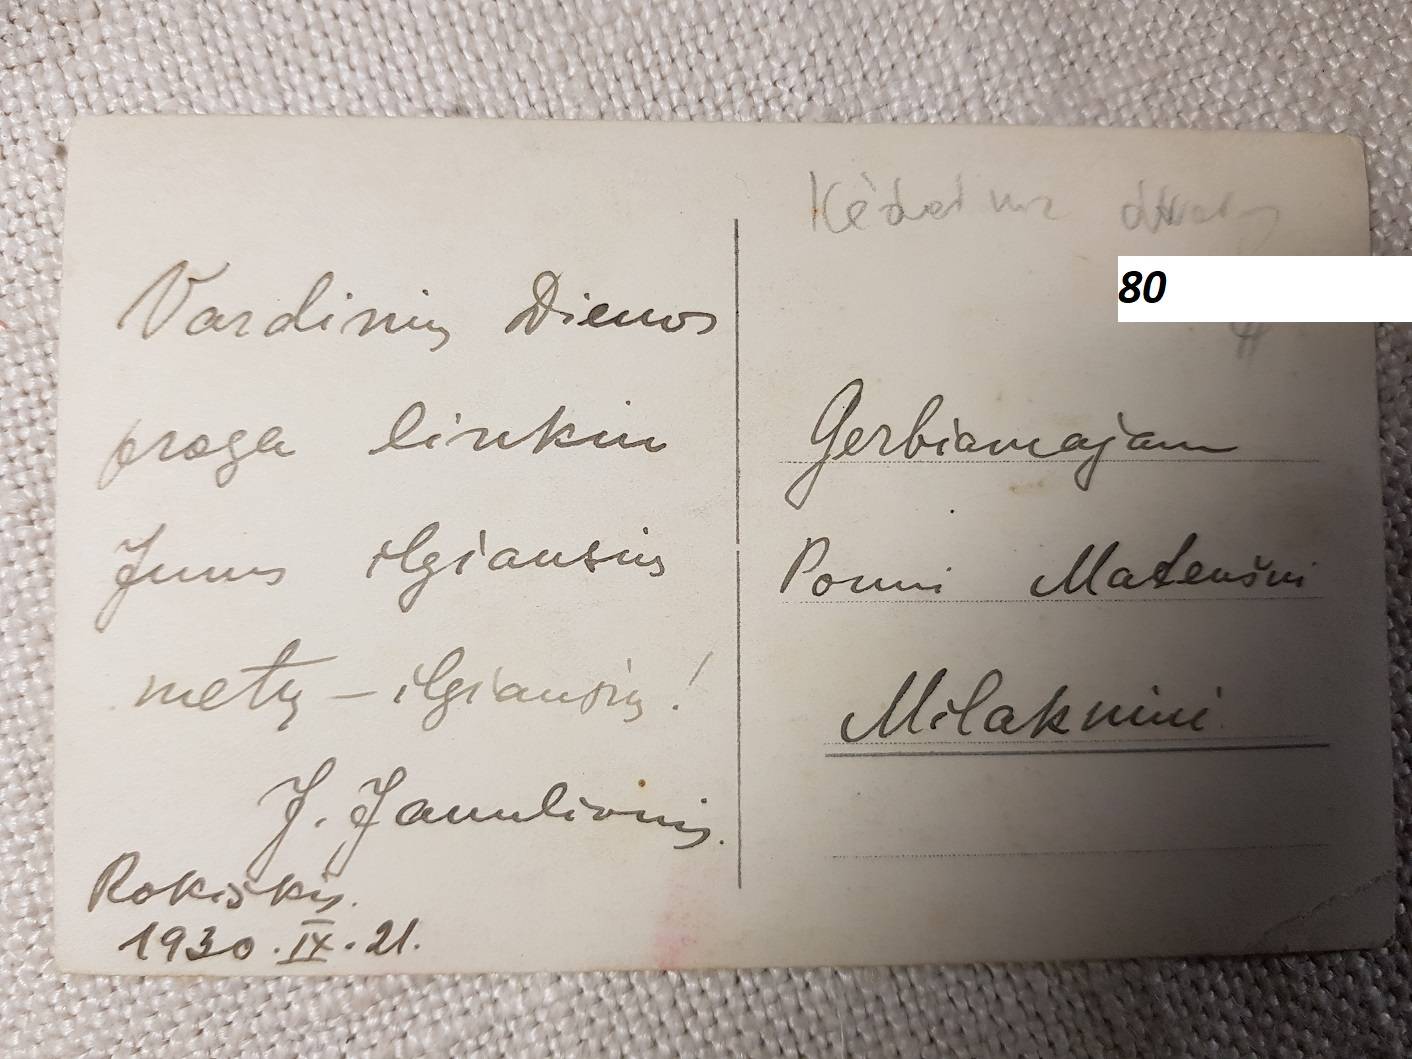 Vardinių Dienos
proga linkiu
Jums ilgiausių
metų – ilgiausių!
J. Janulionis.
Rokiškis.
1930.IX.21.
80
Gerbiamajam
Ponui Mateušui
Milakniui